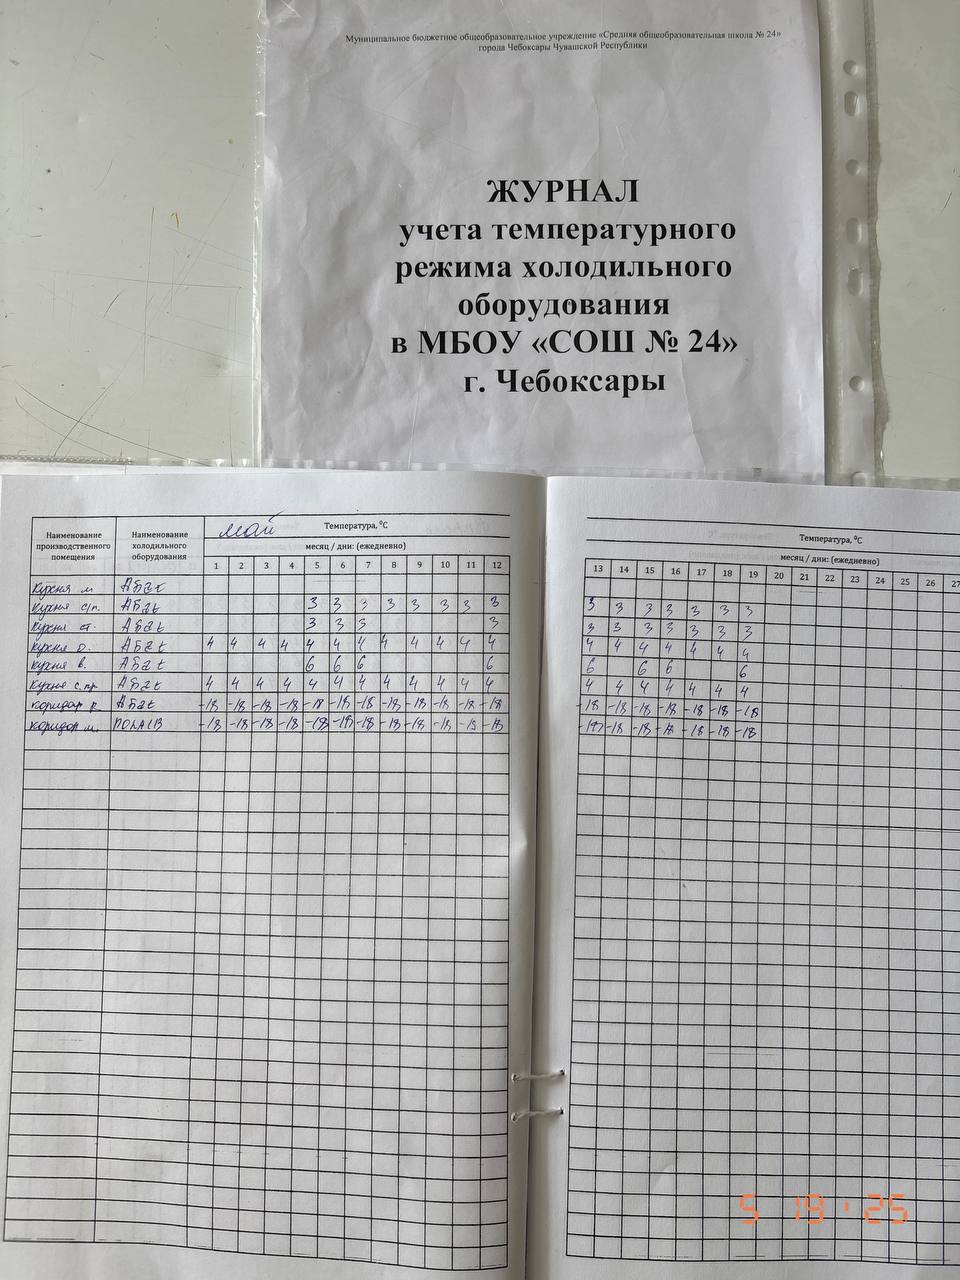 Муниципальное бюджетное общеобразовательное учреждение «Средняя общеобразовательная школа № 24»
города Чебоксары Чувашской Республики
ЖУРНАЛ
учета температурного
режима холодильного
оборудования
в МБОУ «СОШ № 24»
г. Чебоксары
Наименование производственного помещения Наименование холодильного оборудования май Температура, ⁰С
месяц / дни: (ежедневно)
1 2 3 4 5 6 7 8 9 10 11 12
Кухня м Абат
Кухня с/п. Абат 3 3 3 3 3 3 3 3
Кухня ст. Абат 3 3 3 3
Кухня о. Абат 4 4 4 4 4 4 4 4 4 4 4 4
Кухня в. Абат 6 6 6 6
Кухня с.пр Абат 4 4 4 4 4 4 4 4 4 4 4 4
коридор р. Абат -18 -18 -18 -18 -18 -18 -18 -18 -18 -18 -18 -18
коридор м. -18 -18 -18 -18 -18 -18 -18 -18 -18 -18 -18 -18
Температура, ⁰С
месяц / дни: (ежедневно)
13 14 15 16 17 18 19 20 21 22 23 24 25 26 27
3 3 3 3 3 3 3
3 3 3 3 3 3 3
4 4 4 4 4 4 4
6 6 6 6
4 4 4 4 4 4 4
-18 -18 -18 -18 -18 -18 -18
-18 -18 -18 -18 -18 -18
5 19 '25